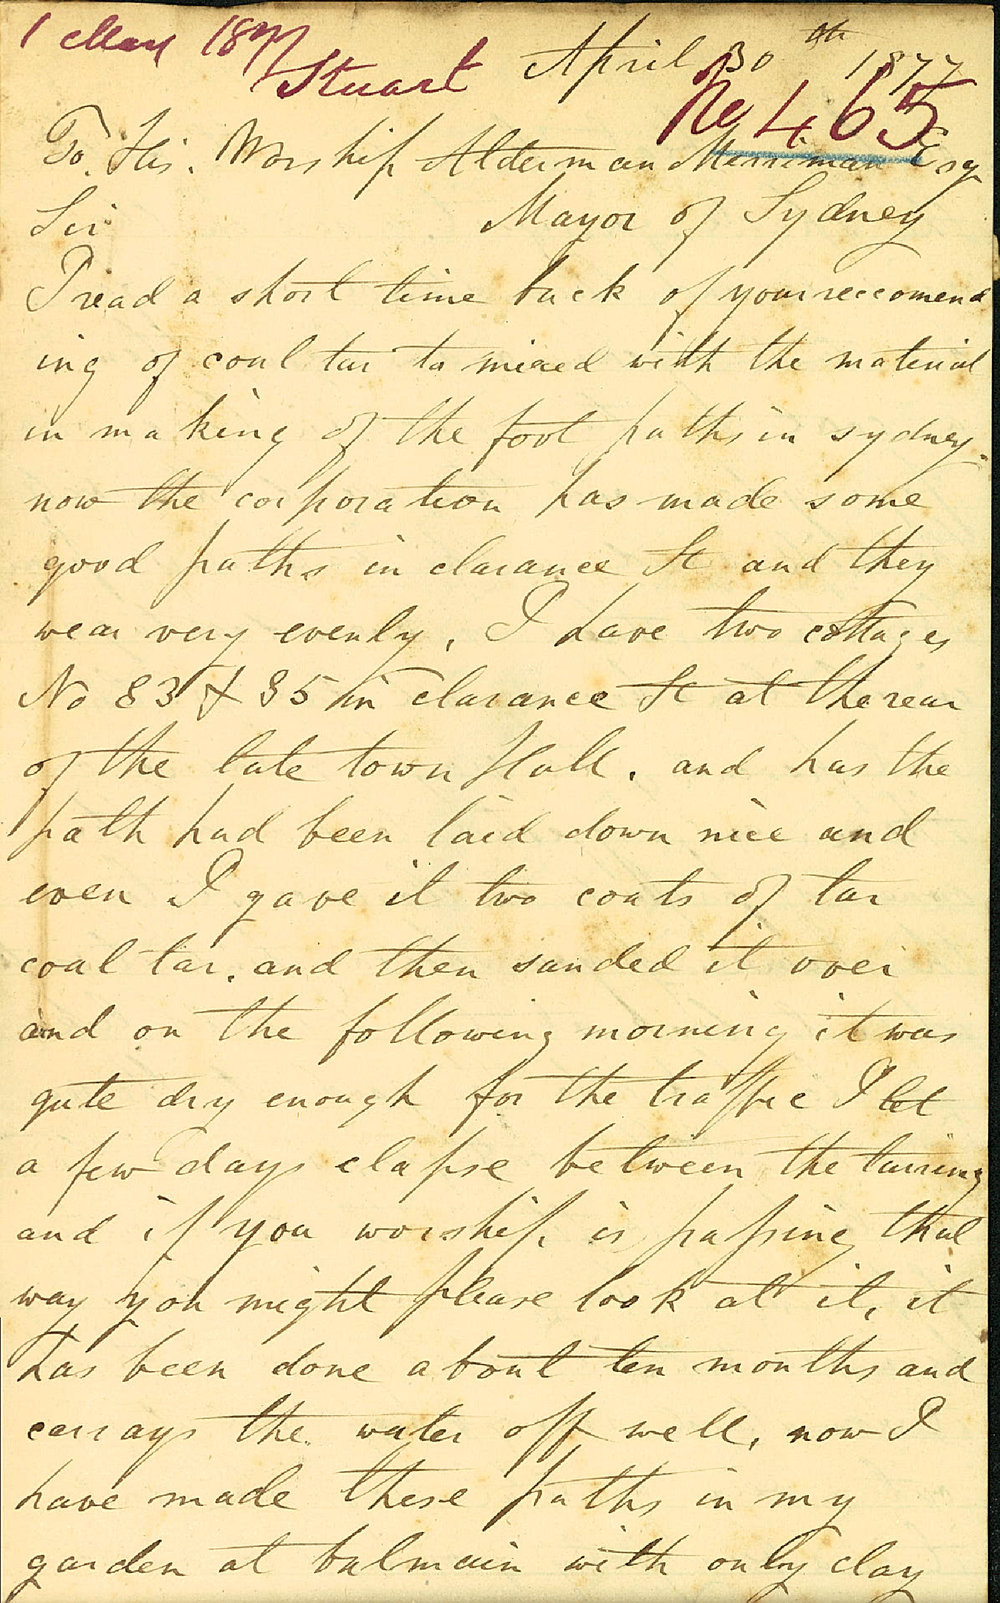 1 May 1877
Stuart
April 30th 1877
No 465
To. His. Worship Alderman Merriman Esq
Sir Mayor of Sydney
I read a short time back of your reccomend
ing of coal tar to mixed with the material
in making of the foot paths in sydney.
now the corporation has made some
good paths in clarance St and they
wear very evenly, I have two cottages
No 83 & 85 in clarance St at the rear
of the late town Hall. and has the
path had been laid down nice and
even I gave it two coats of tar
coal tar. and then sanded it over
and on the following morning it was
qute dry enough for the traffic I let
a few days elapse between the tarring
and if you worship is passing that
way you might please look at it, it
has been done about ten months and
carrays the water off well, now I
have made these paths in my
garden at balmain with only clay